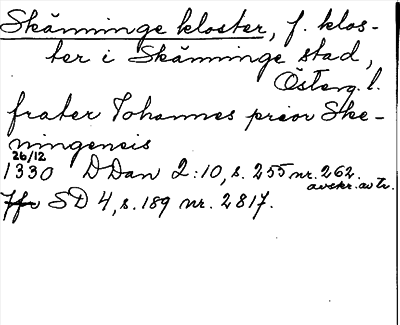 Skänninge kloster, f. klos-
ter i Skänninge stad,
Österg. l.
frater Johannes prior Ske-
ningensis
26/12
1330 DDan 2:10, s. 255 nr. 262.
avskr. av tr.
Jfr SD 4, s. 189 nr. 2817.